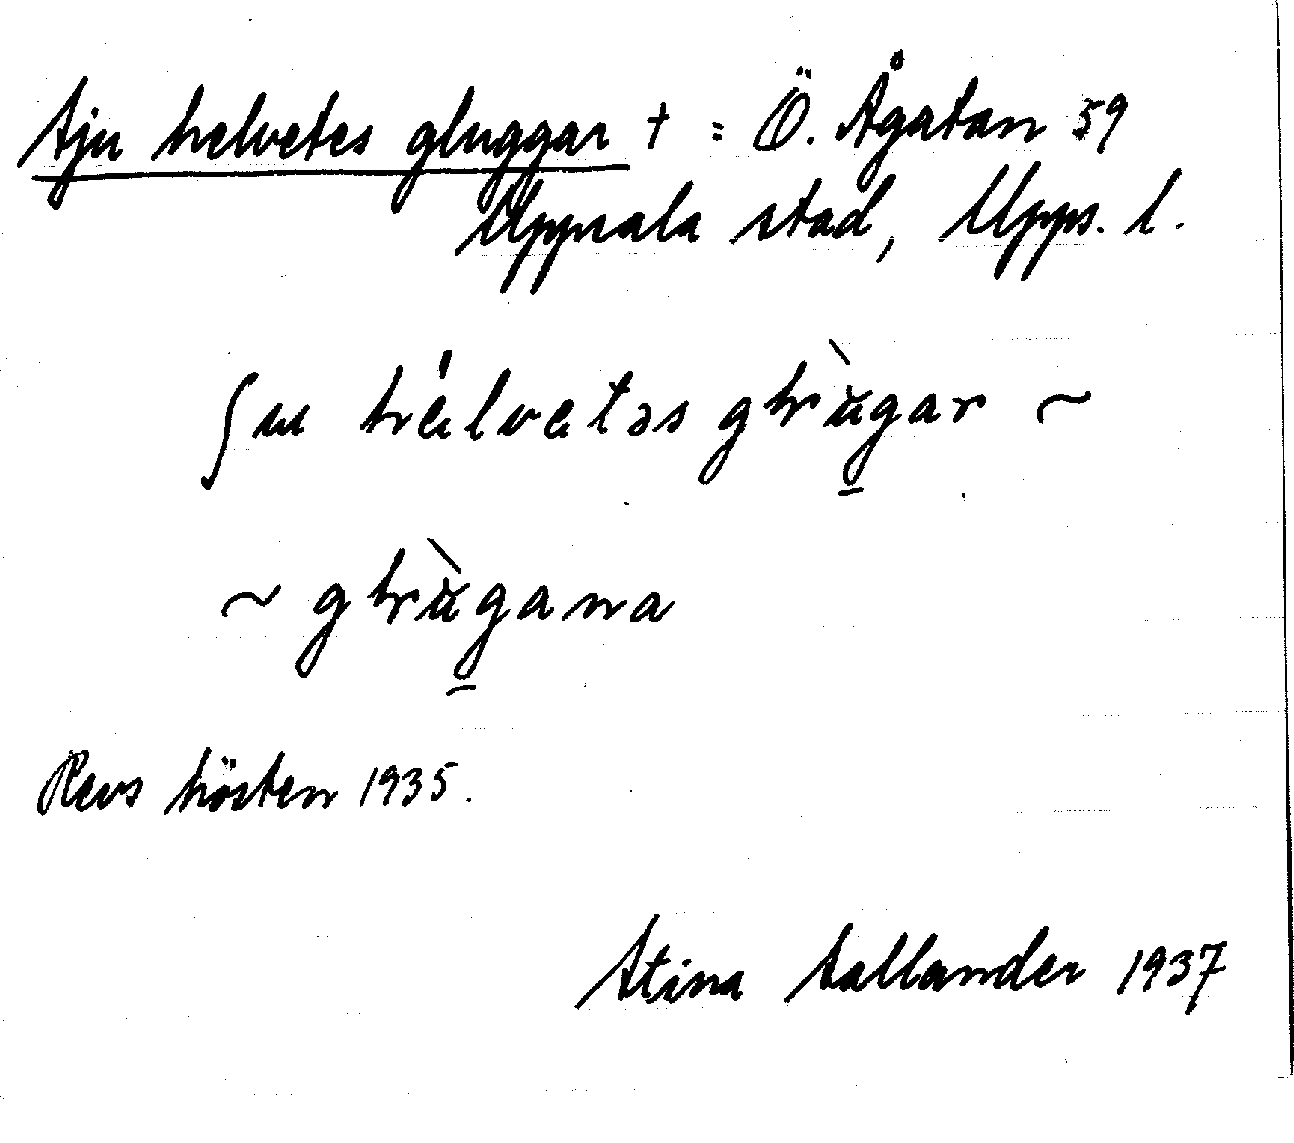 Sju helvetes gluggar † = Ö. Ågatan 59
Uppsala stad, Upps. l.
ʃʉ hélvetəs glùgar ~
~ glùgana
Revs hösten 1935.
Stina Sallander 1937